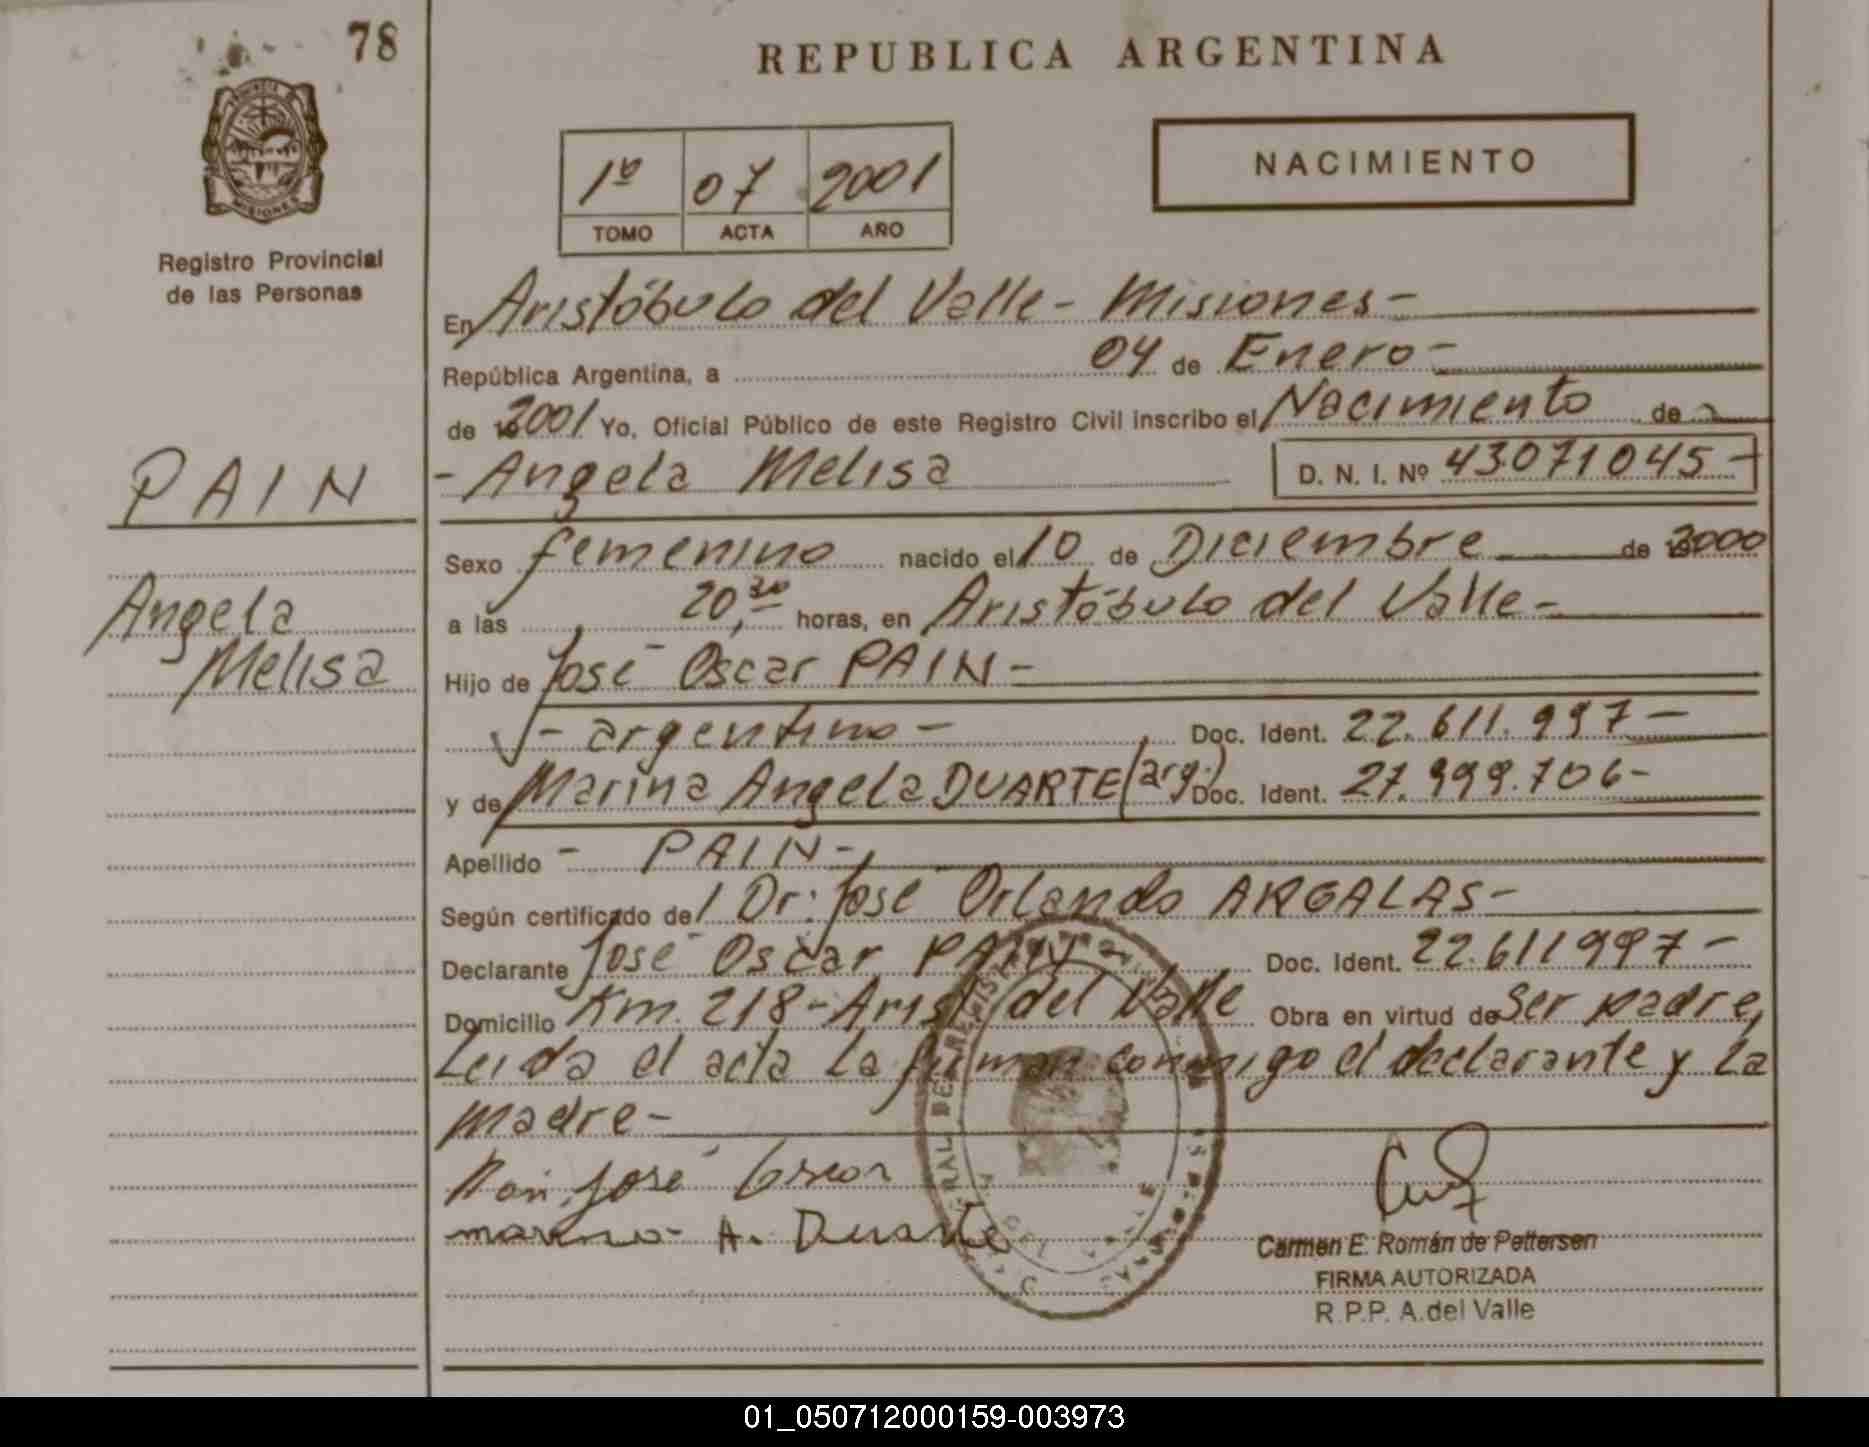 78
REPUBLICA ARGENTINA
PROVINCIA
MISIONES
Registro Provincial
de las Personas
1º 07 2001
TOMO ACTA AÑO
NACIMIENTO
En Aristóbulo del Valle - Misiones -
República Argentina, a 04 de Enero -
de 2001 Yo, Oficial Público de este Registro Civil inscribo el Nacimiento de
- Angela Melisa D. N. I. Nº 43071045 -
PAIN
Angela
Melisa
Sexo femenino nacido el 10 de Diciembre de 2000
a las 20,30 horas, en Aristóbulo del Valle -
Hijo de José Oscar PAIN -
- argentino - Doc. Ident. 22.611.997 -
y de Marina Angela DUARTE (arg.) Doc. Ident. 27.999.706 -
Apellido - PAIN -
Según certificado de Dr: José Orlando ARGALAS -
Declarante José Oscar PAIN Doc. Ident. 22.611997 -
Domicilio Km. 218 - Arist. del Valle Obra en virtud de Ser padre,
Leida el acta la firman conmigo el declarante y la
madre -
Pain José Oscar
A. Duarte
Carmen E. Román de Pettersen
FIRMA AUTORIZADA
R.P.P. A.del Valle
01_050712000159-003973